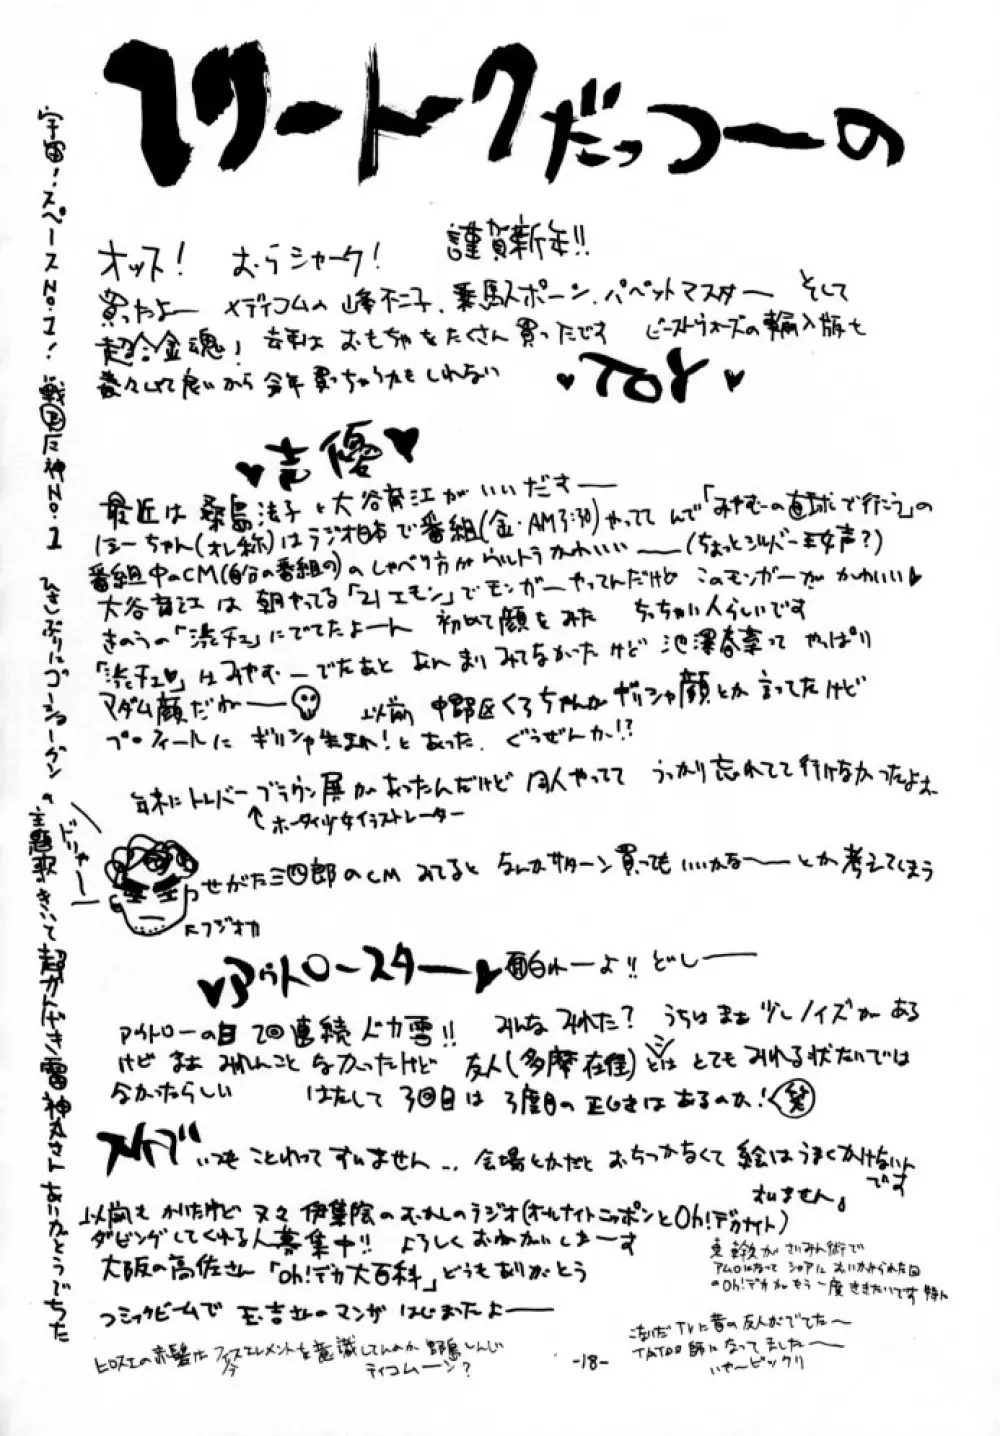 フリートークだっつーの
オッス! おらシャーク! 謹賀新年!!
買ったよー メディコムの峰不二子、乗馬スポーン、パペットマスター そして
超合金魂! 去年は おもちゃをたくさん買ったです ビーストウォーズの輸入版も
着々として良いから 今年買っちゃうかもしれない ♥TOY♥
♥声優♥
最近は 桑島法子と大谷育江がいいだすー
ほーちゃん(オレ称)はラジオ日本で番組(金・AM3:30)やってて んで「みやむーの直球で行こう」の
番組中のCM(自分の番組の)のしゃべり方がウルトラかわいいー (ちょっとシルバー王女声?)
大谷育江は 朝やってる「21エモン」でモンガーやってんだけど このモンガーが かわいい♥
きのうの「渋チェ」にでてたよーん 初めて顔をみた ちっちゃい人らしいです
「渋チェ♥」はみやむーでたあと あんまりみてなかったけど 池澤春菜って やっぱり
マダム顔だねー 以前 中野区くろちゃんがギリシャ顔とか言ってたけど
プロフィールに ギリシャ生まれ!とあった、ぐうぜんか!?
年末にトレバーブラウン展があったんだけど 同人やってて うっかり忘れてて行けなかったよお
↑ホータイ少女イラストレーター
ドリャー
せがた三四郎のCM みてると なんかサターン買ってもいいかなーとか考えてしまう
フジオカ
♥アウトロースター♥ 面白れーよ!! どしー
アウトローの日 2回連続ドカ雪!! みんなみれた? うちはまぁ少しノイズがある
けど まぁ みれんこと なかったけど 友人(多摩在住)とは とてもみれる状たいでは
なかったらしい はたして 3回目は 3度目の正じきはあるのか!(笑)
スケブ いつも ことわってすいません… 会場とかだと おちつかなくて 絵はうまくかけないんです
すいません。
以前も かいたけど 又々 伊集院のむかしのラジオ(オールナイトニッポンとOh!デカナイト)
ダビングしてくれる人募集中!! よろしくおねがいしまーす
大阪の高佐さん「Oh!デカ大百科」どうもありがとう
コミックビームで 玉吉さんのマンガ はじまったよー
ヒロスエの赤髪は フィフスエレメントを意識してんのか 野島しんじ
ティコムーン?
東幹久がさいみん術で
アムロになって シャアにおいかけられた回
のOh!デカがもう一度ききたいです 特に
こないだTVに昔の友人がでてたー
TATOO師になってましたー
いやービックリ
-18-
宇宙!スペースNo.1! 戦国魔神No.1 ひさしぶりにゴーショーグンの主題歌きいて超かんげき 雷神丸さんありがとうでちた